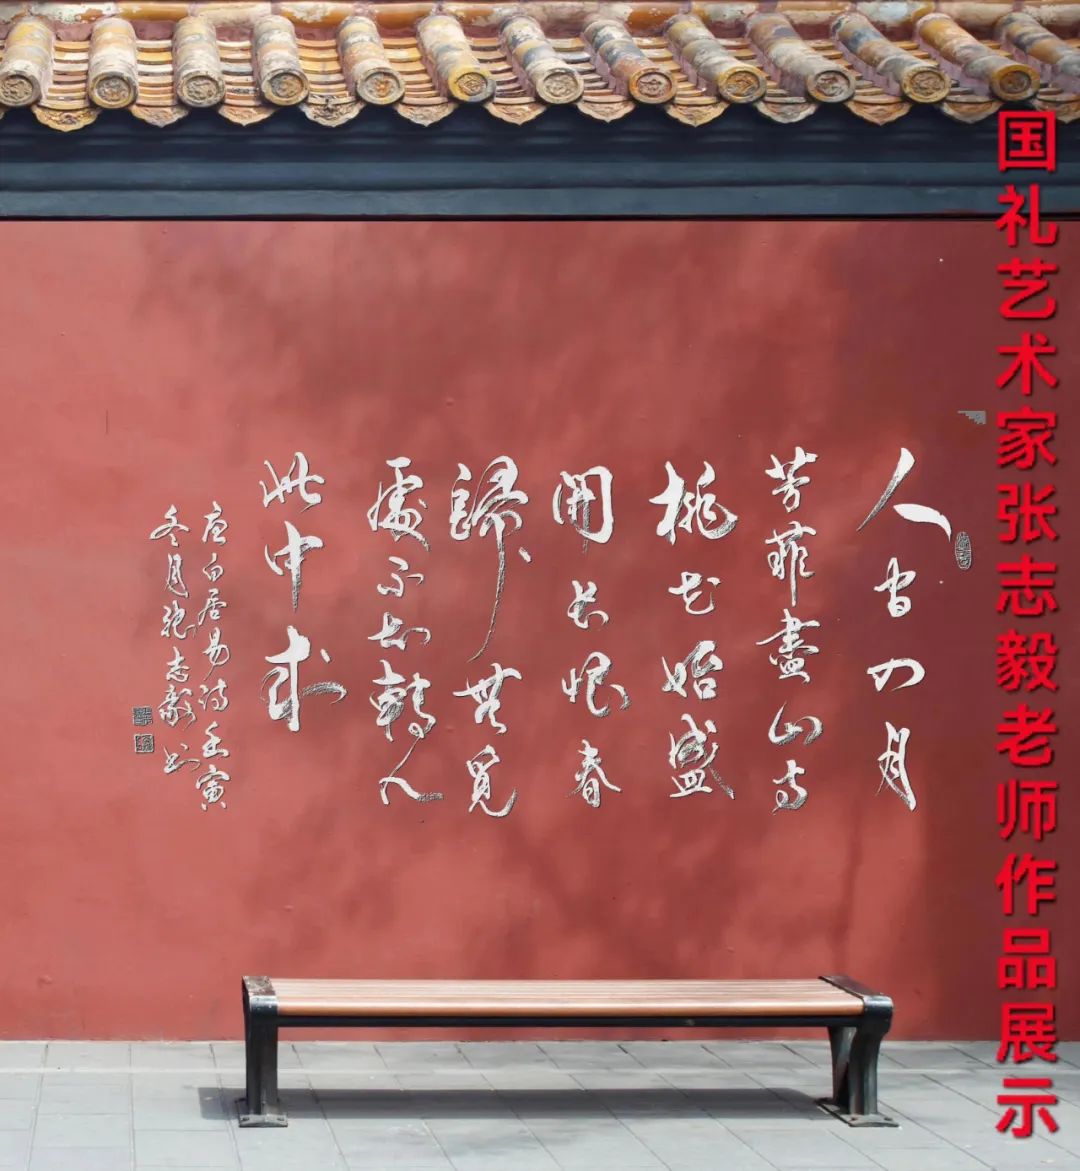 国礼艺术家张志毅老师作品展示
人间四月
芳菲盡山寺
桃花始盛
開长恨春
歸無覓
處不知轉入
此中來
唐白居易诗壬寅
冬月张志毅书